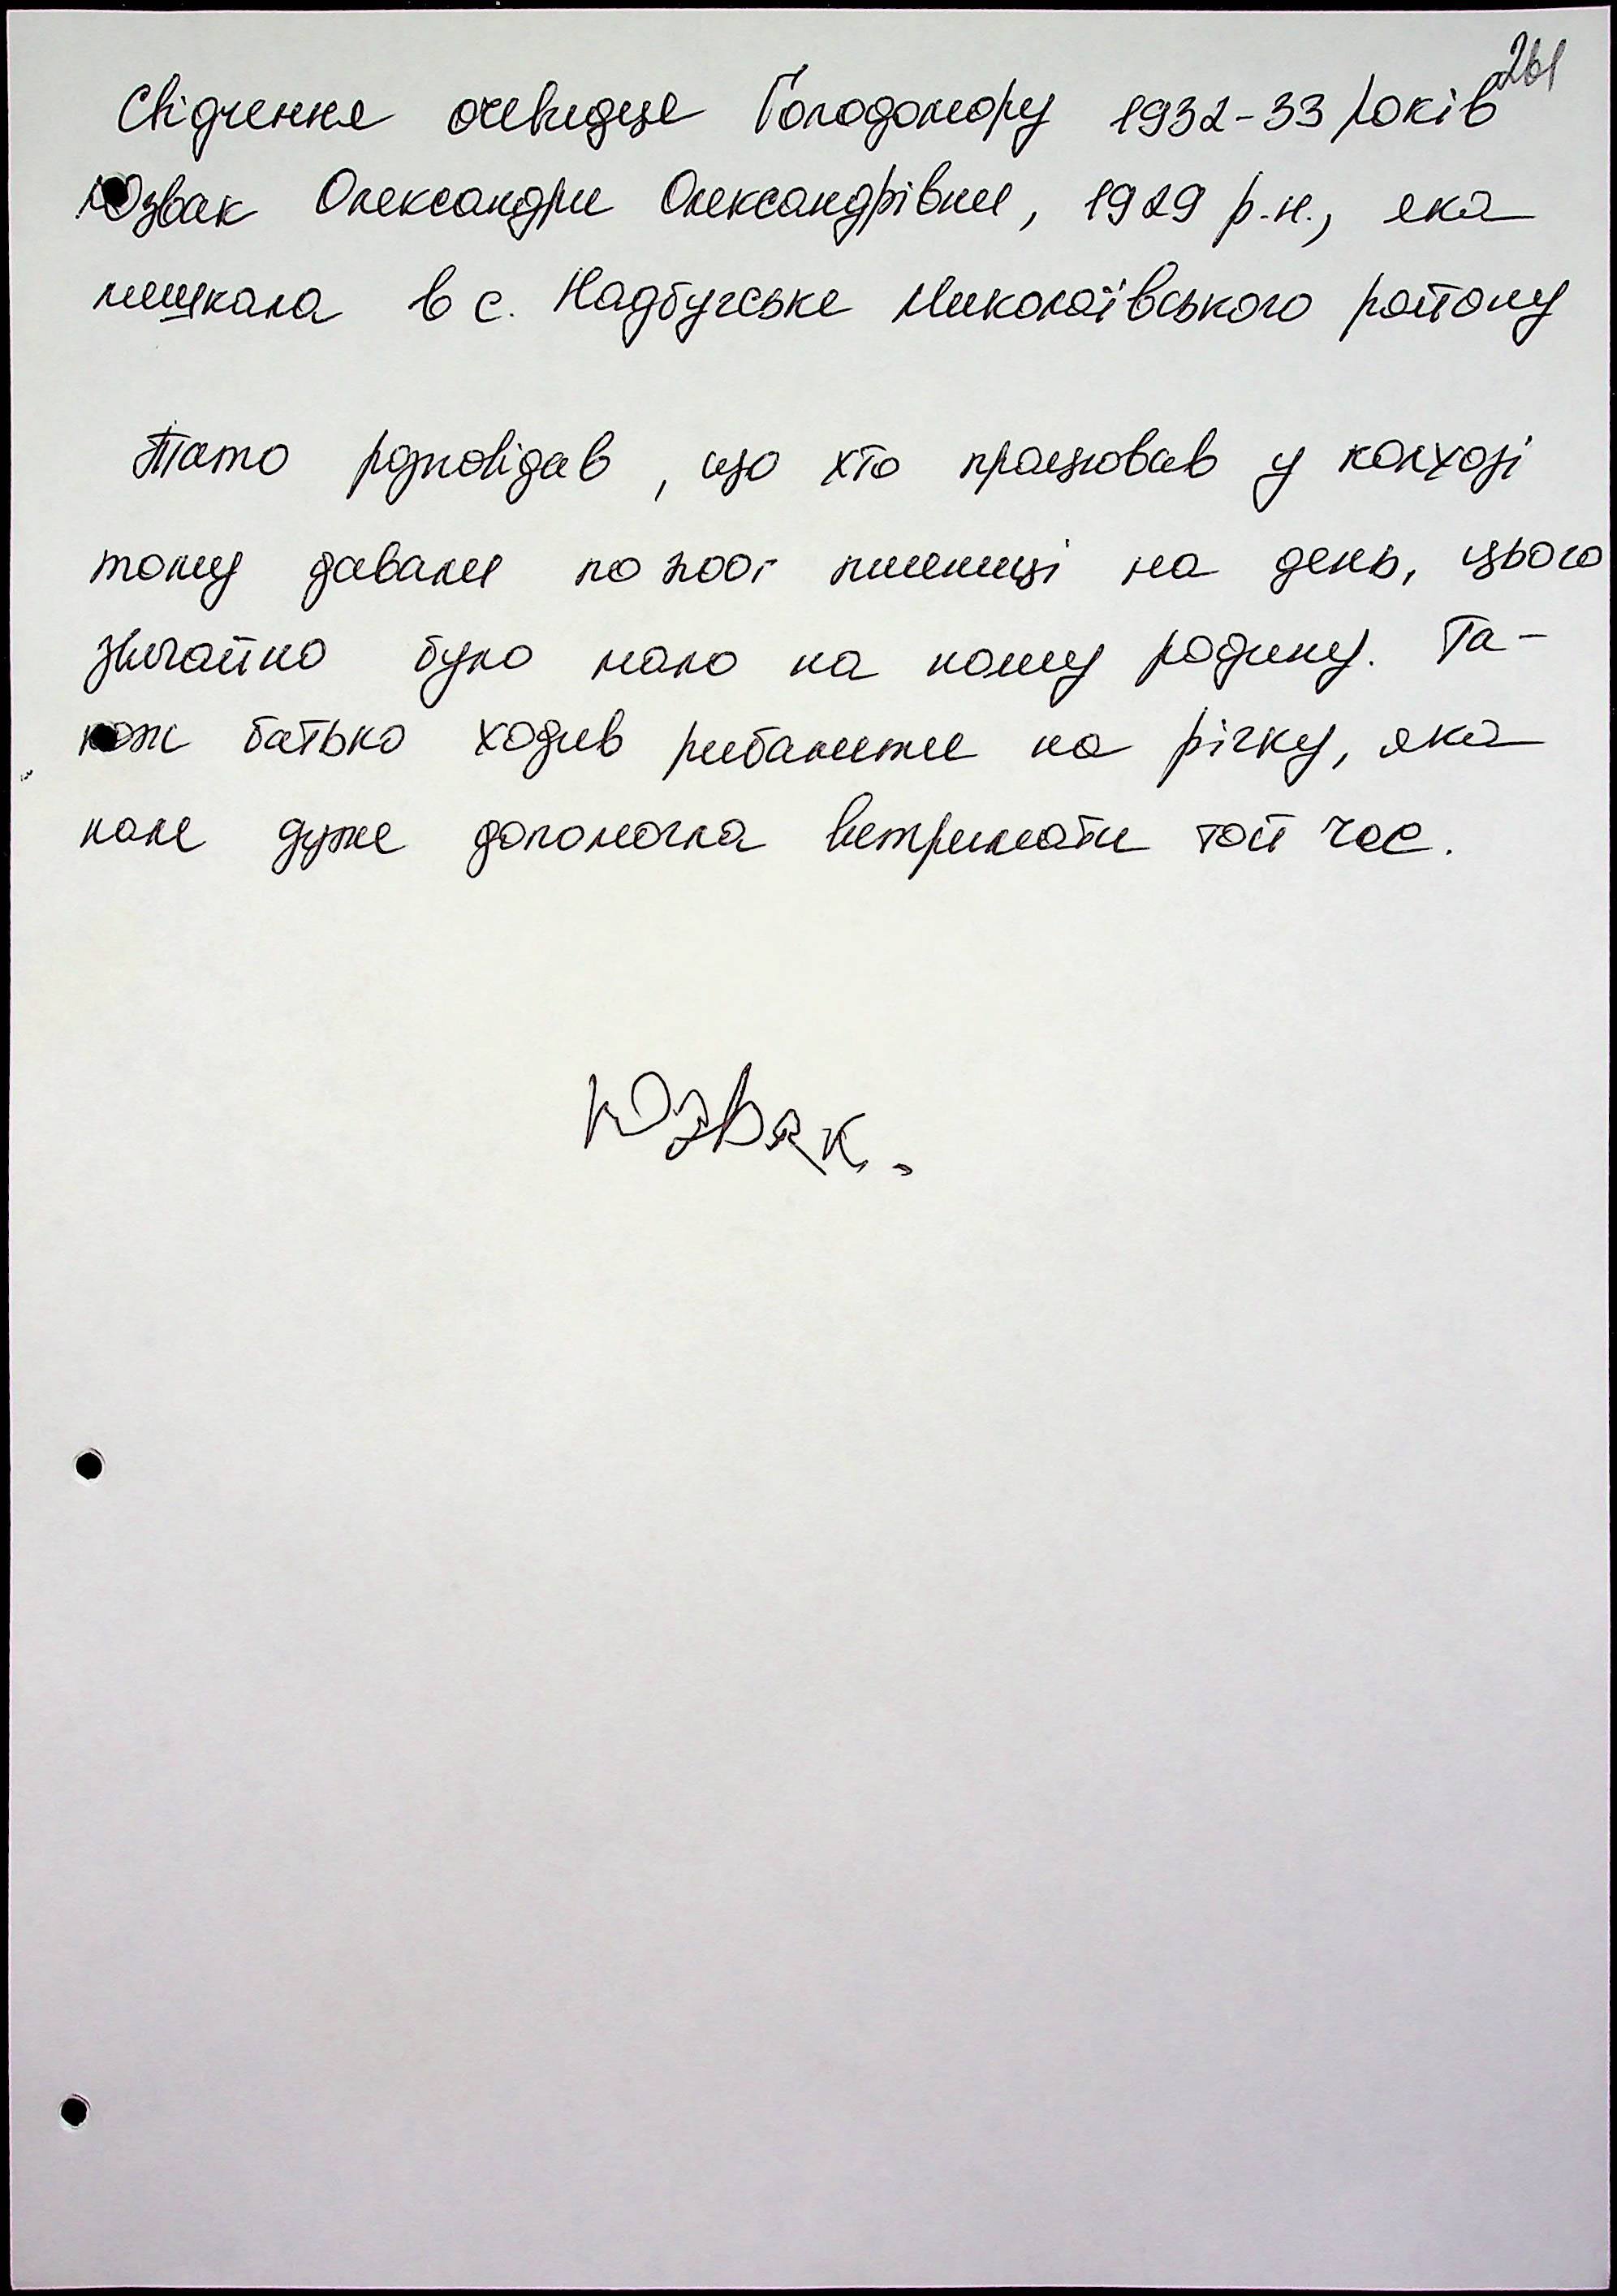 261
Свідчення очевидця Голодомору 1932-33 років
Юзвак Олександри Олександрівни, 1929 р.н., яка
мешкала в с. Надбузське Миколаївського району
Тато розповідав, що хто працював у колхозі
тому давали по 700г пшениці на день, цього
звичайно було мало на нашу родину. Та-
кож батько ходив рибалити на річку, яка
нам дуже допомогла витримати той час.
Юзвак.